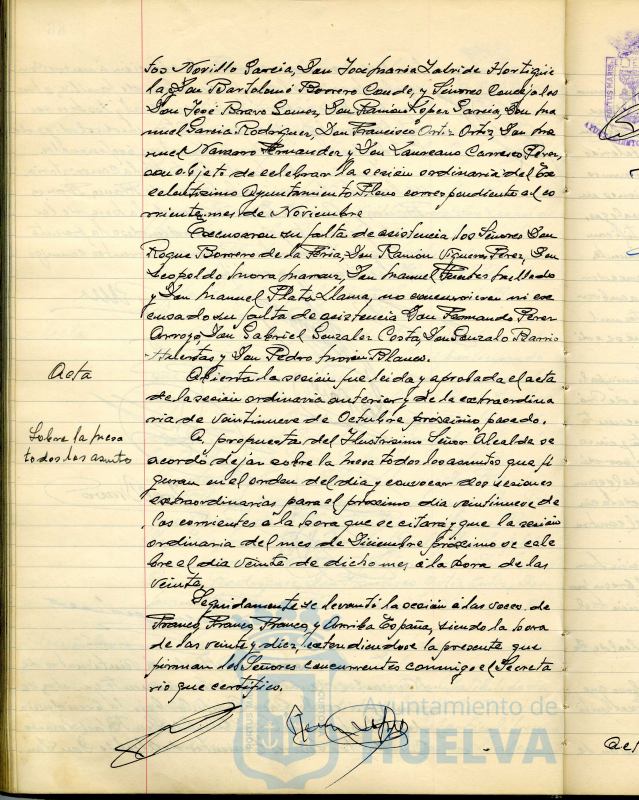 tos Novillo García, Don José María Zalvide Hortigüe
la, Don Bartolomé Borrero Conde, y Señores Concejales
Don José Bravo Gomez, Don Ramón López García, Don Ma
nuel García Rodríguez, Don Francisco Ortiz Ortiz, Don Ma
nuel Navarro Fernandez y Don Laureano Carrasco Perez,
con objeto de celebrar la sesión ordinaria del Ex
celentísimo Ayuntamiento Pleno correspondiente al co
rriente mes de Noviembre
Excusaron su falta de asistencia los Señores Don
Roque Borrero de la Feria, Don Ramón Vigueras Pérez, Don
Leopoldo Mora Don Manuel Fuentes
y Don Manuel Plata Llama, no concurrieron ni ex
cusado su falta de asistencia Don Fernando Pérez
Arroyo, Don Gabriel Gonzalez Costa, Don Gonzalo Barrio
Huertas y Don Pedro Morón Blanco.
Acta
Abierta la sesión fue leida y aprobada el acta
de la sesión ordinaria anterior y de la extraordina
ria de veintinueve de Octubre próximo pasado.
Sobre la mesa
todos los asunto
A propuesta del Ilustrísimo Señor Alcalde se
acordó dejar sobre la Mesa todos los asuntos que fi
guran en el orden del dia y convocar dos sesiones
extraordinarias para el próximo dia veintinueve de
los corrientes á la hora que se citará y que la sesión
ordinaria del mes de Diciembre próximo se cele
bre el dia veinte de dicho mes, á la hora de las
veinte.
Seguidamente se levantó la sesión á las voces de
Franco, Franco, Franco, y Arriba España, siendo la hora
de las veinte y diez, extendiendose la presente que
firman los Señores concurrentes conmigo el Secreta
rio que certifico.
Ayuntamiento de
HUELVA